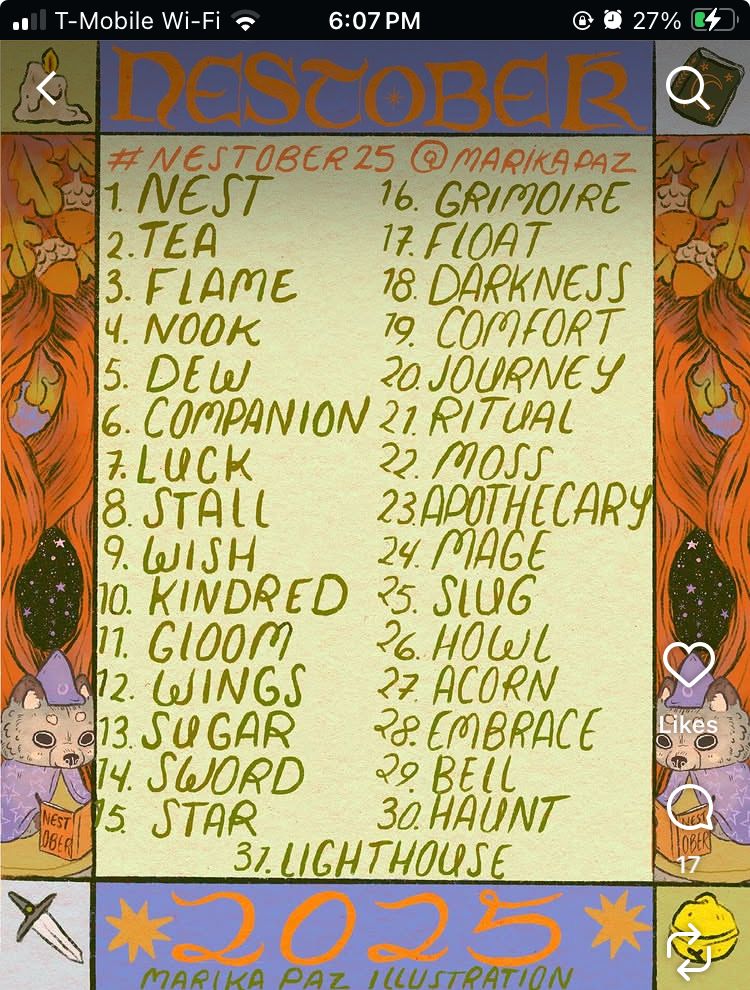 T-Mobile Wi-Fi 6:07 PM 27%
NESTOBER
#NESTOBER25 @MARIKAPAZ
1. NEST
2. TEA
3. FLAME
4. NOOK
5. DEW
6. COMPANION
7. LUCK
8. STALL
9. WISH
10. KINDRED
11. GLOOM
12. WINGS
13. SUGAR
14. SWORD
15. STAR
16. GRIMOIRE
17. FLOAT
18. DARKNESS
19. COMFORT
20. JOURNEY
21. RITUAL
22. MOSS
23. APOTHECARY
24. MAGE
25. SLUG
26. HOWL
27. ACORN
28. EMBRACE
29. BELL
30. HAUNT
31. LIGHTHOUSE
NEST
OBER
Likes
NEST
OBER
17
2025
MARIKA PAZ ILLUSTRATION